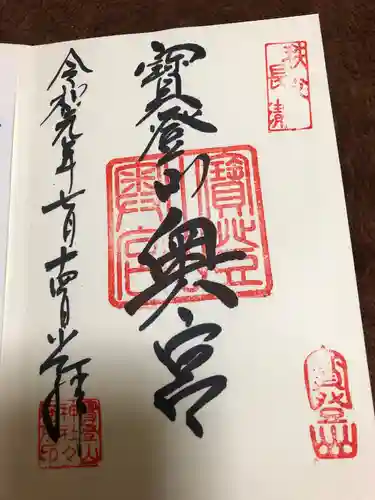 秩父
長瀞
寶登山奥宮
寶登山
奥宮
寶登山
令和元年七月十四日 奉拝
寶登山
神社々
務所印